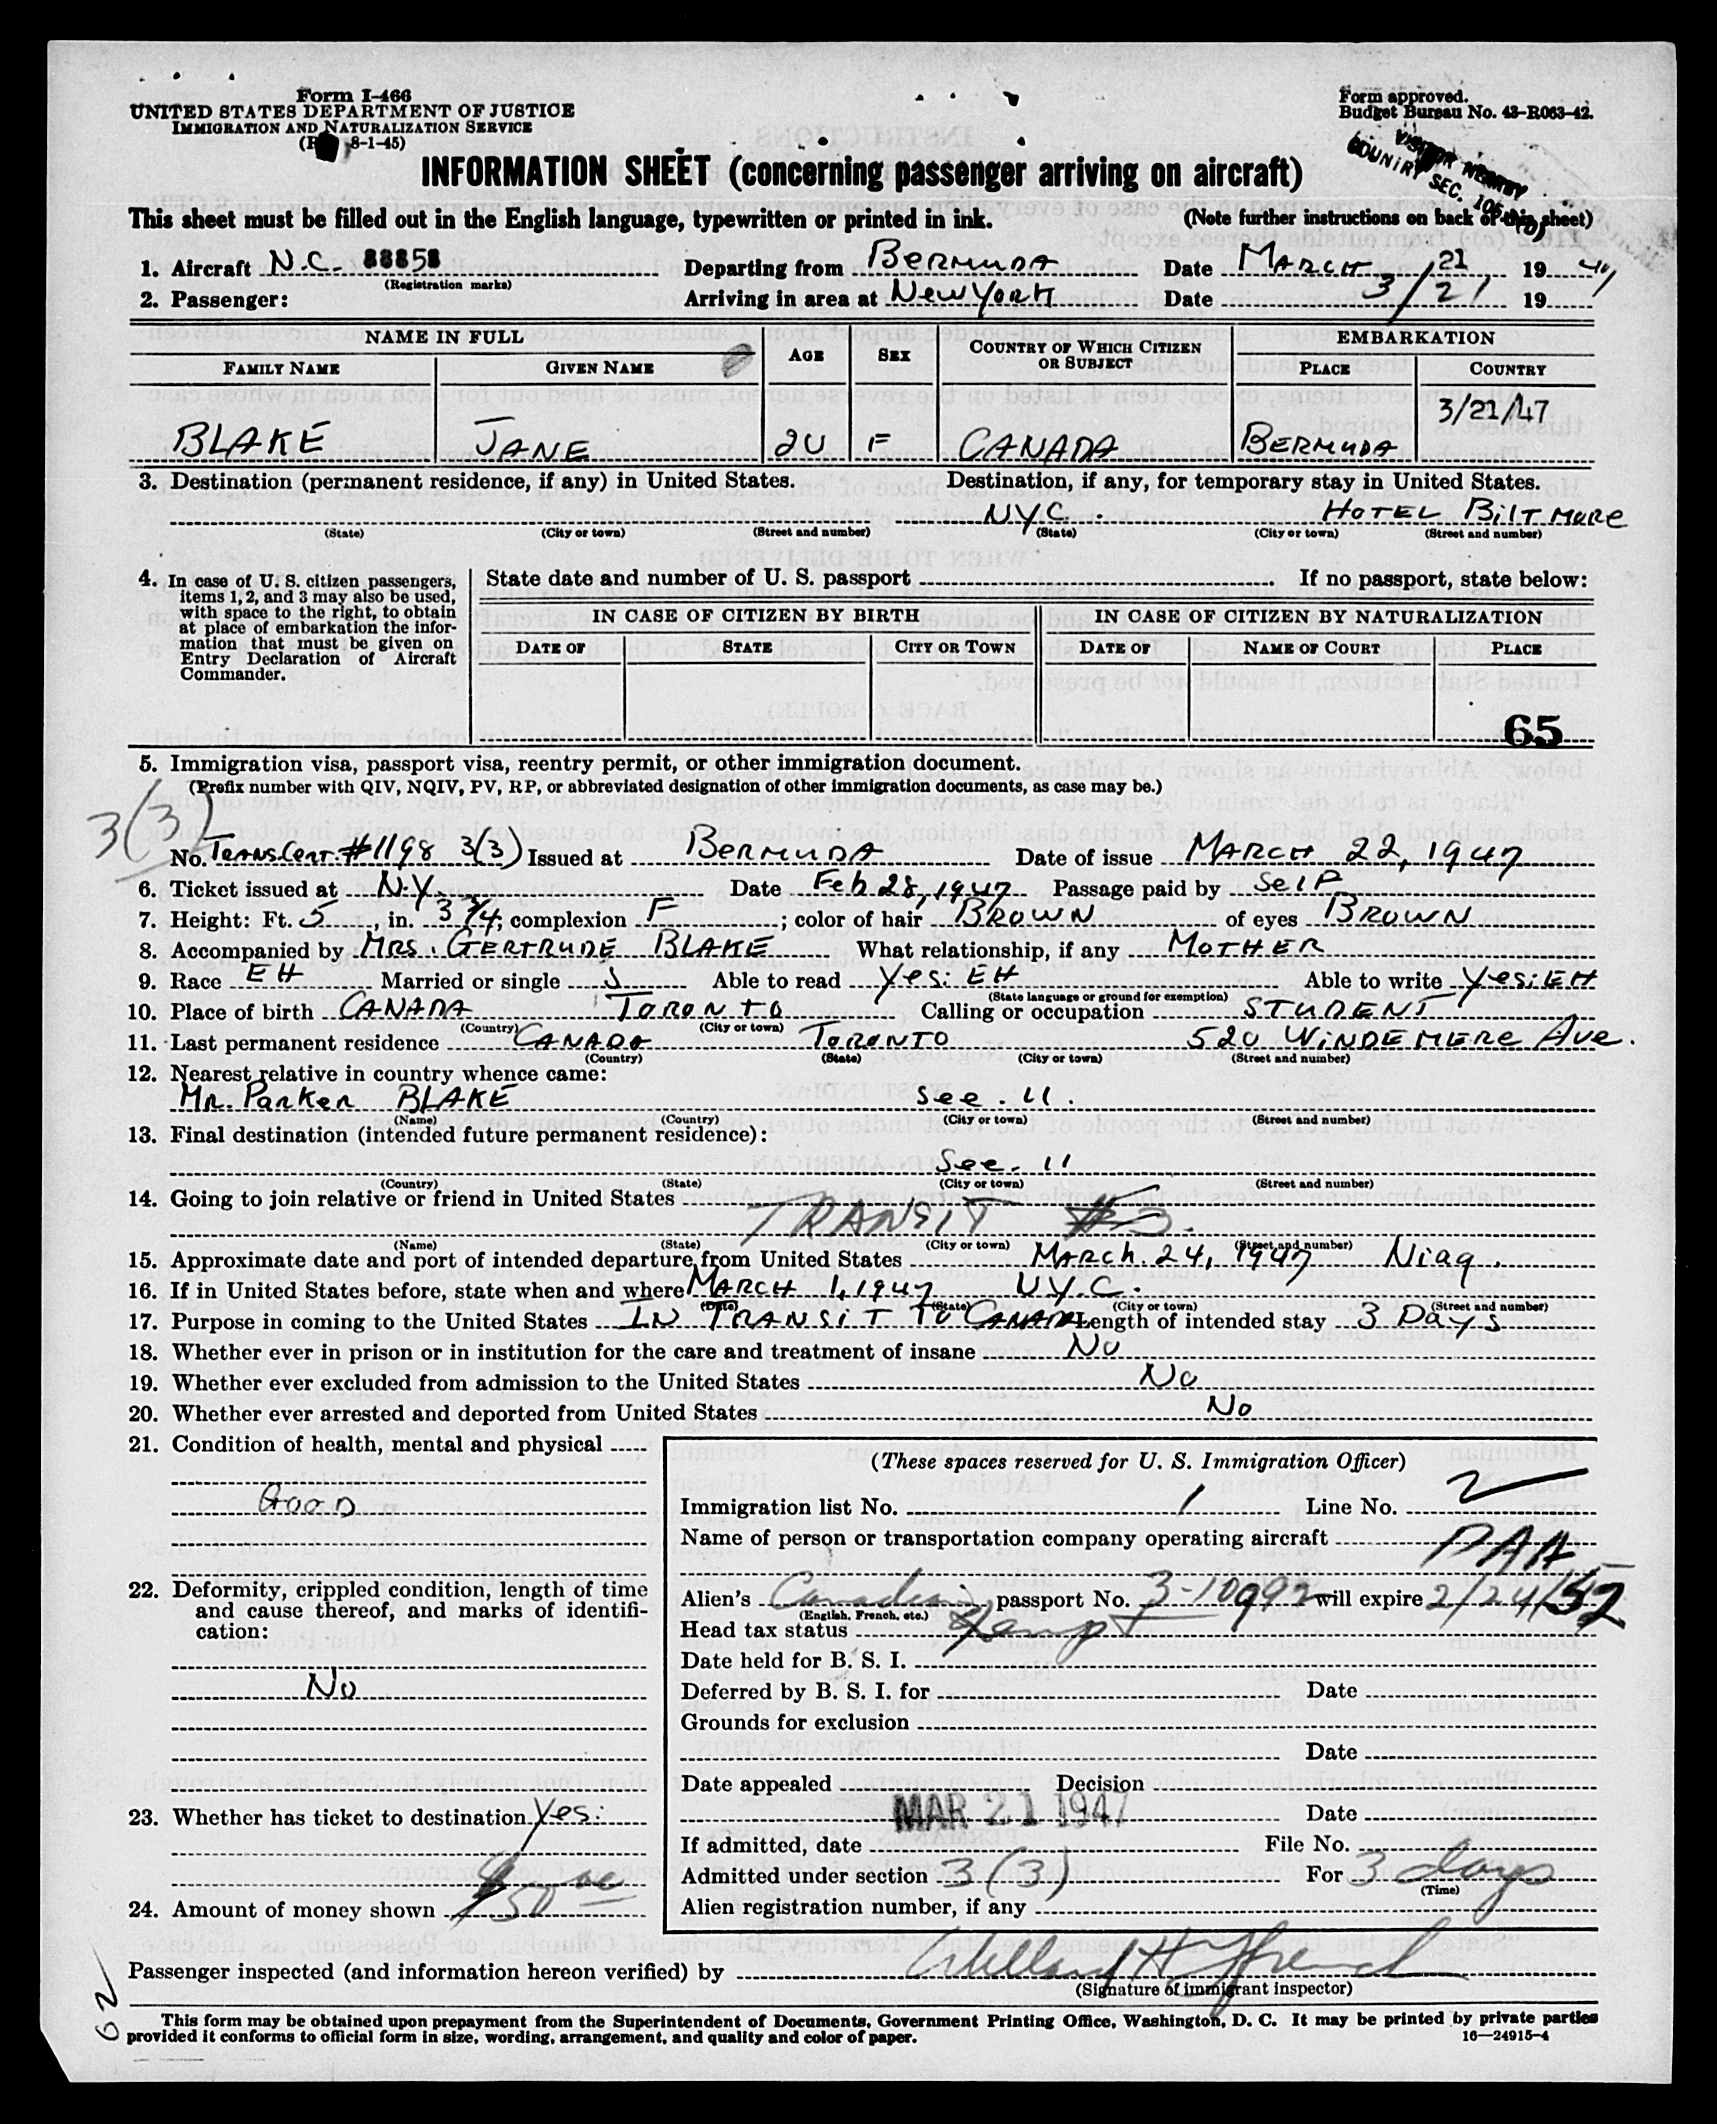 Form I-466
UNITED STATES DEPARTMENT OF JUSTICE
IMMIGRATION AND NATURALIZATION SERVICE
8-1-45)
Form approved.
Budget Bureau No. 43-R063-42.
VISITOR NEARBY
COUNTRY SEC. 105
INFORMATION SHEET (concerning passenger arriving on aircraft)
This sheet must be filled out in the English language, typewritten or printed in ink. (Note further instructions on back of this sheet)
1. Aircraft N.C. 88858 Departing from BERMUDA Date MARCH 21 19 47
(Registration marks)
2. Passenger: Arriving in area at New YORK Date 3/21 19
NAME IN FULL AGE SEX COUNTRY OF WHICH CITIZEN OR SUBJECT EMBARKATION
FAMILY NAME GIVEN NAME PLACE COUNTRY
3/21/47
BLAKE JANE 20 F CANADA BERMUDA
3. Destination (permanent residence, if any) in United States. Destination, if any, for temporary stay in United States.
NYC. HOTEL BILTMORE
(State) (City or town) (Street and number) (State) (City or town) (Street and number)
4. In case of U. S. citizen passengers, items 1, 2, and 3 may also be used, with space to the right, to obtain at place of embarkation the information that must be given on Entry Declaration of Aircraft Commander.
State date and number of U. S. passport If no passport, state below:
IN CASE OF CITIZEN BY BIRTH IN CASE OF CITIZEN BY NATURALIZATION
DATE OF STATE CITY OR TOWN DATE OF NAME OF COURT PLACE
65
5. Immigration visa, passport visa, reentry permit, or other immigration document.
(Prefix number with QIV, NQIV, PV, RP, or abbreviated designation of other immigration documents, as case may be.)
3(3)
No. Trans Cert. #1198 3(3) Issued at BERMUDA Date of issue MARCH 22, 1947
6. Ticket issued at N.Y. Date Feb 28, 1947 Passage paid by SelF
7. Height: Ft. 5, in. 3 3/4; complexion F; color of hair BROWN of eyes BROWN
8. Accompanied by MRS. GERTRUDE BLAKE What relationship, if any MOTHER
9. Race EH Married or single S Able to read Yes. EH Able to write Yes. EH
(State language or ground for exemption)
10. Place of birth CANADA TORONTO Calling or occupation STUDENT
(Country) (City or town)
11. Last permanent residence CANADA TORONTO 520 WINDEMERE Ave.
(Country) (State) (City or town) (Street and number)
12. Nearest relative in country whence came:
MR. Parker BLAKE See. 11.
(Name) (Country) (City or town) (Street and number)
13. Final destination (intended future permanent residence):
See. 11
(Country) (State) (City or town) (Street and number)
14. Going to join relative or friend in United States
TRANSIT
(Name) (State) (City or town) (Street and number)
15. Approximate date and port of intended departure from United States MARCH. 24, 1947 Niag.
16. If in United States before, state when and where MARCH 1, 1947 N.Y.C.
(Date) (State) (City or town) (Street and number)
17. Purpose in coming to the United States IN TRANSIT TO CANADA Length of intended stay 3 Days
18. Whether ever in prison or in institution for the care and treatment of insane No
19. Whether ever excluded from admission to the United States No
20. Whether ever arrested and deported from United States No
21. Condition of health, mental and physical
GOOD
22. Deformity, crippled condition, length of time and cause thereof, and marks of identification:
No
23. Whether has ticket to destination Yes.
24. Amount of money shown $50 00
(These spaces reserved for U. S. Immigration Officer)
Immigration list No. 1 Line No. 2
Name of person or transportation company operating aircraft PAA
Alien's Canadian passport No. 3-10992 will expire 2/24/52
(English, French, etc.)
Head tax status Exempt
Date held for B. S. I.
Deferred by B. S. I. for Date
Grounds for exclusion
Date
Date appealed Decision
MAR 21 1947 Date
If admitted, date File No.
Admitted under section 3(3) For 3 days
(Time)
Alien registration number, if any
Passenger inspected (and information hereon verified) by Willard H French
(Signature of immigrant inspector)
62
This form may be obtained upon prepayment from the Superintendent of Documents, Government Printing Office, Washington, D. C. It may be printed by private parties
provided it conforms to official form in size, wording, arrangement, and quality and color of paper. 16—24915-4